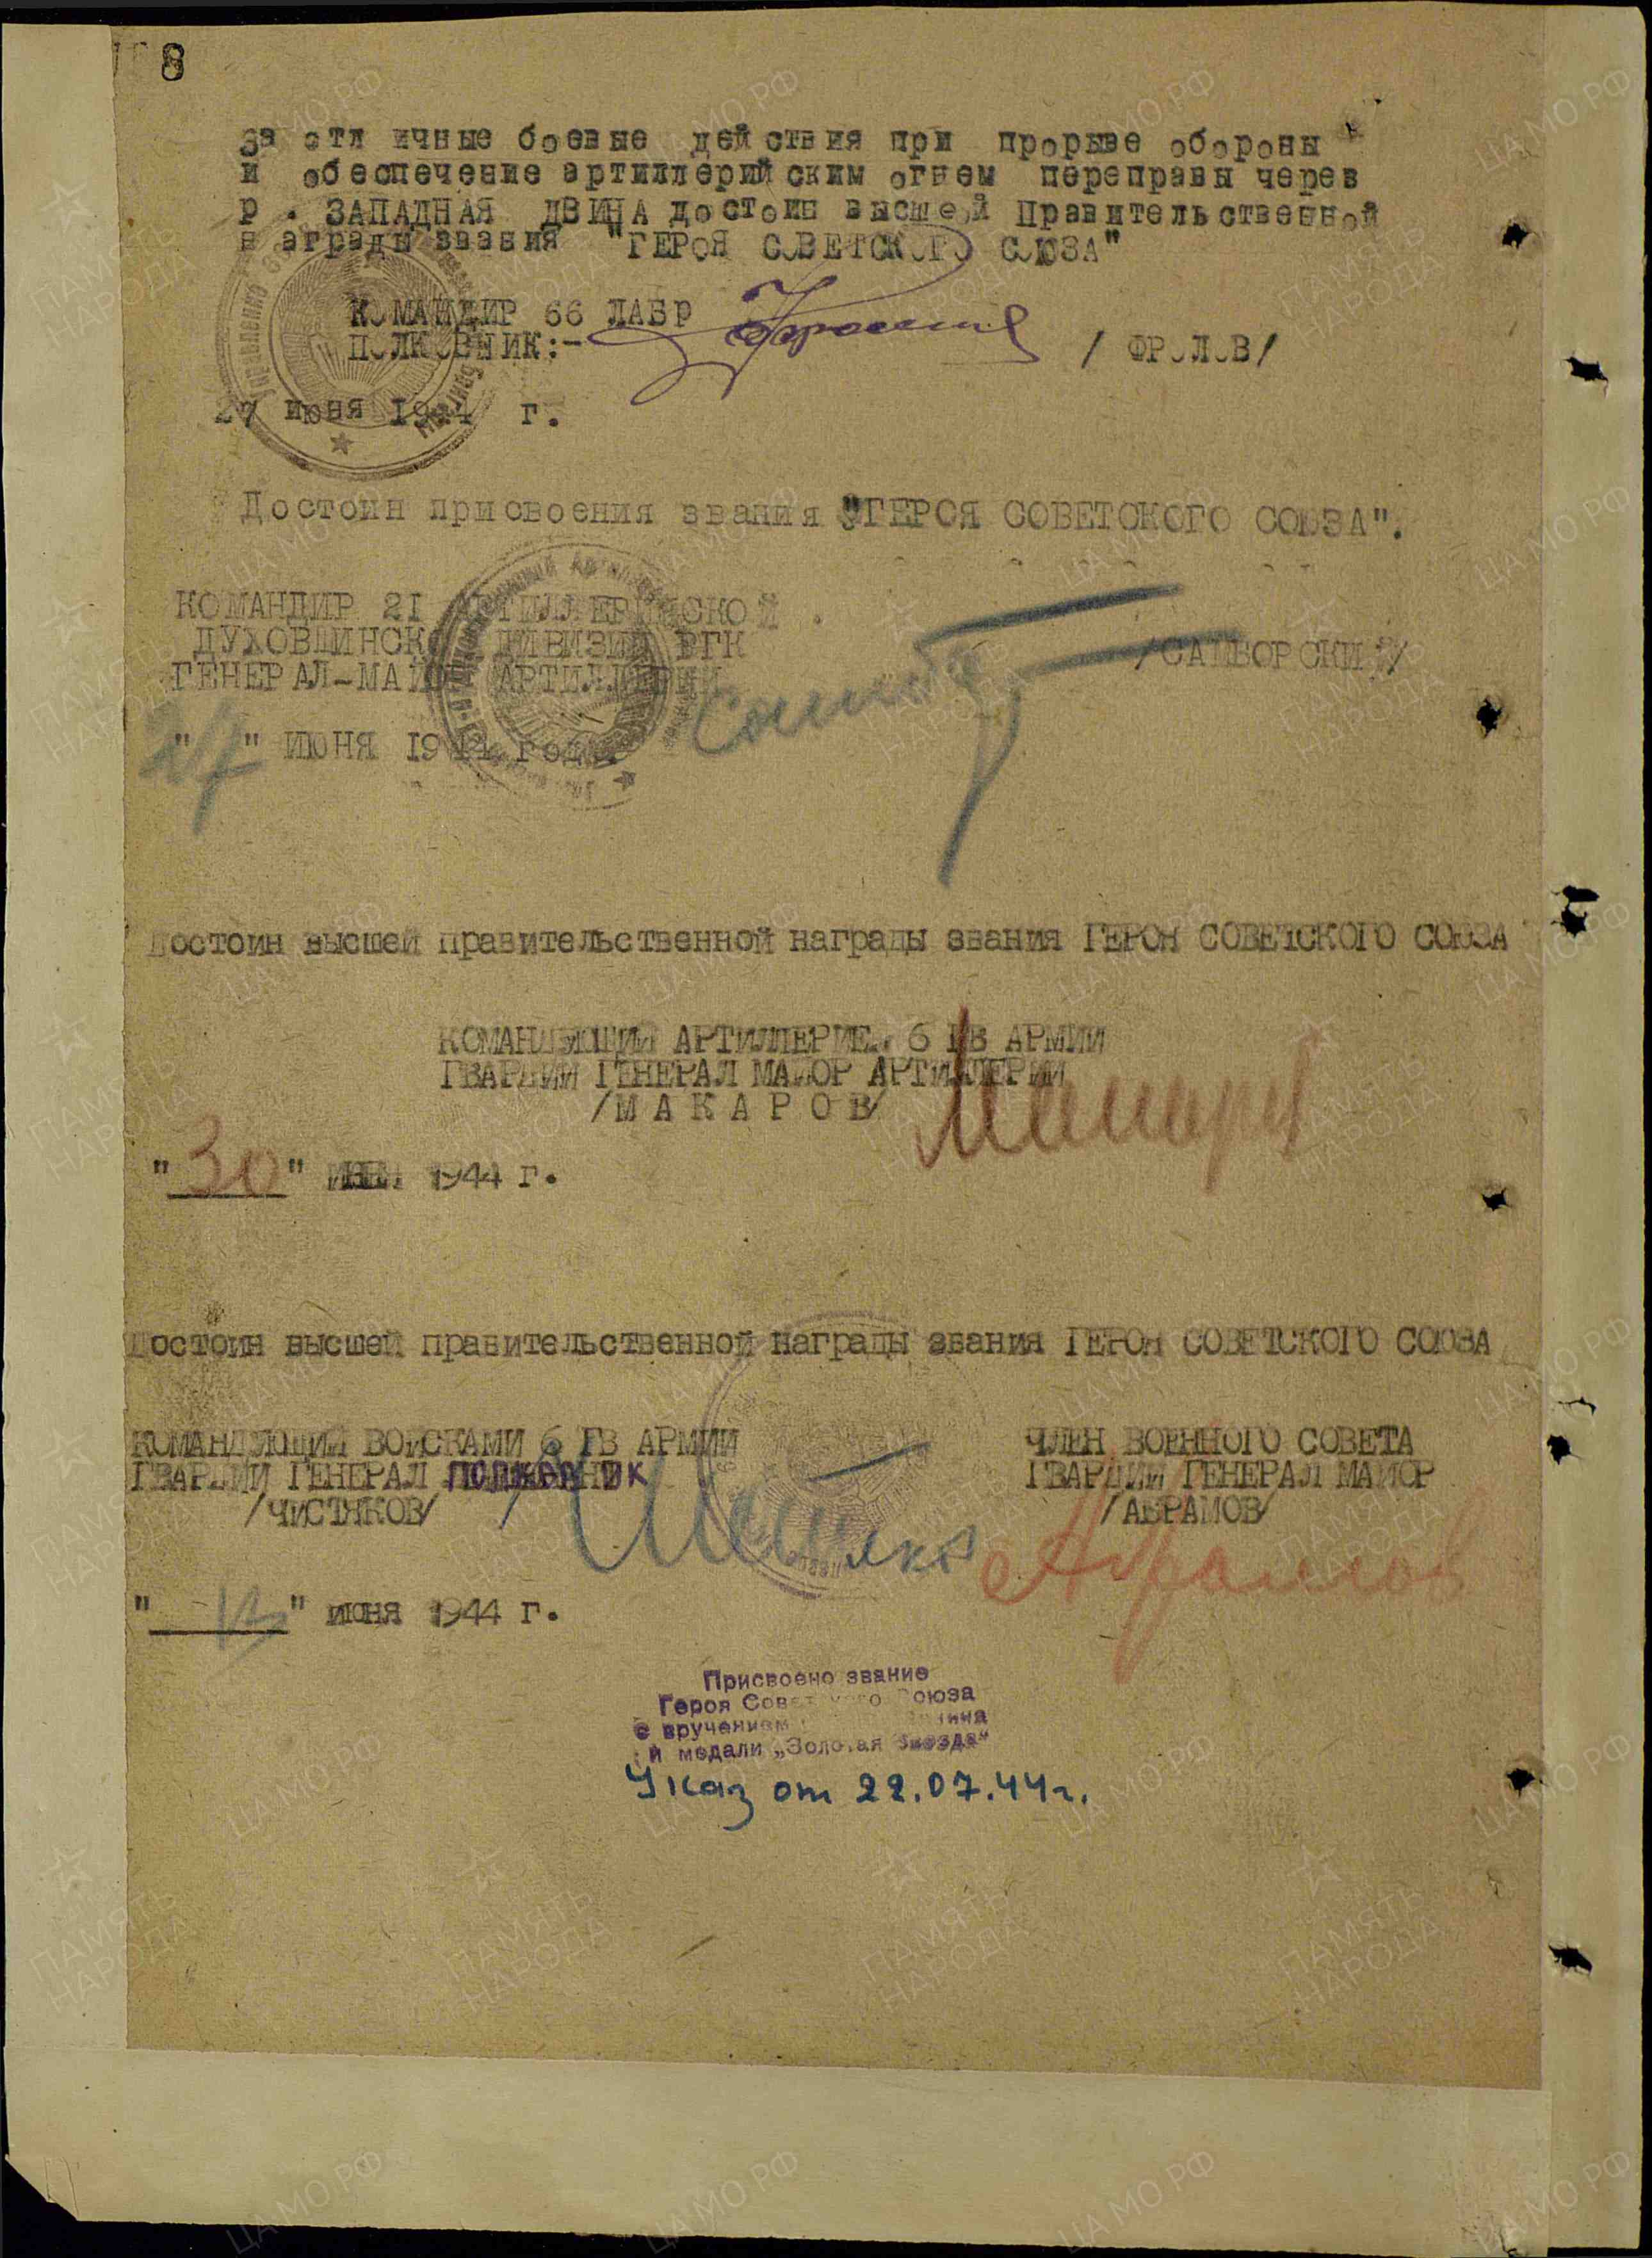 8
за отл ичные боевые дей ствия при прорыве обороны
и обеспечение артиллерий ским огнем переправы через
р . ЗАПАДНАЯ ДВИНА достоин высшей Правительственной
н аграды звания "ГЕРОЯ СОВЕТСКОГО СОЮЗА"
КОМАНДИР 66 ЛАБР
ПОЛКОВНИК:-
/ ФРОЛОВ/
27 июня 1944 г.
Достоин присвоения звания "ГЕРОЯ СОВЕТСКОГО СОЮЗА".
КОМАНДИР 21 АРТИЛЛЕРИЙСКОЙ
ДУХОВЩИНСКОЙ ДИВИЗИИ РГК
ГЕНЕРАЛ-МАЙОР АРТИЛЛЕРИИ
/САМБОРСКИЙ/
"27" ИЮНЯ 1944 года.
Достоин высшей правительственной награды звания ГЕРОЯ СОВЕТСКОГО СОЮЗА
КОМАНДУЮЩИЙ АРТИЛЛЕРИЕЙ 6 ГВ АРМИИ
ГВАРДИИ ГЕНЕРАЛ МАЙОР АРТИЛЛЕРИИ
/М А К А Р О В/
"30" июня 1944 г.
Достоин высшей правительственной награды звания ГЕРОЯ СОВЕТСКОГО СОЮЗА
КОМАНДУЮЩИЙ ВОЙСКАМИ 6 ГВ АРМИИ
ГВАРДИИ ГЕНЕРАЛ ПОЛКОВНИК
/ЧИСТЯКОВ/
ЧЛЕН ВОЕННОГО СОВЕТА
ГВАРДИИ ГЕНЕРАЛ МАЙОР
/АБРАМОВ/
Абрамов
" " июня 1944 г.
Присвоено звание
Героя Советского Союза
с вручением Ленина
и медали „Золотая Звезда"
Указ от 22.07.44г.
ПАМЯТЬ НАРОДА
ЦА МО РФ